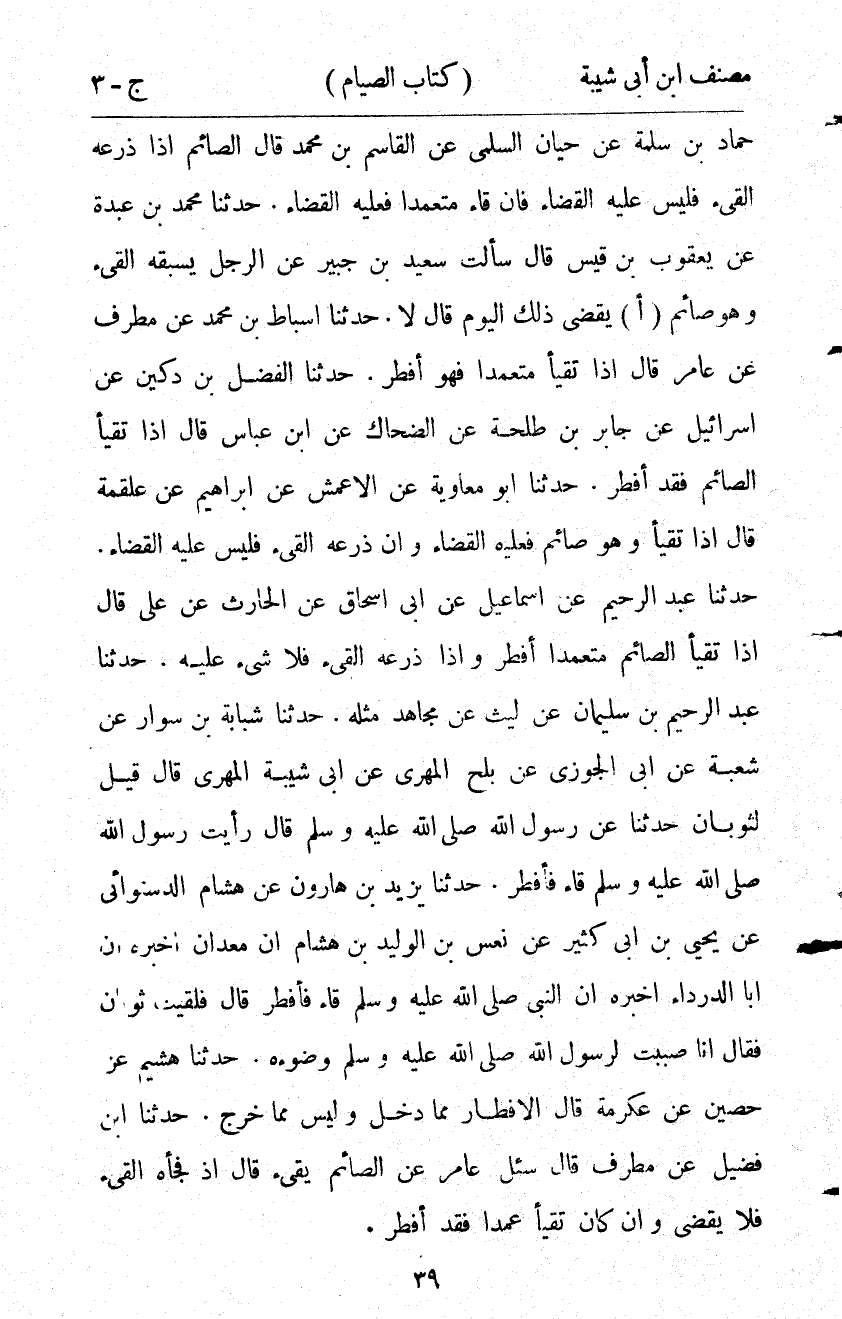 مصنف ابن أبى شيبة ( كتاب الصيام ) ج - ٣
حماد بن سلمة عن حيان السلمى عن القاسم بن محمد قال الصائم اذا ذرعه
القىء فليس عليه القضاء فان قاء متعمدا فعليه القضاء . حدثنا محمد بن عبدة
عن يعقوب بن قيس قال سألت سعيد بن جبير عن الرجل يسبقه القىء
و هو صائم ( أ ) يقضى ذلك اليوم قال لا . حدثنا اسباط بن محمد عن مطرف
عن عامر قال اذا تقيأ متعمدا فهو أفطر . حدثنا الفضل بن دكين عن
اسرائيل عن جابر بن طلحة عن الضحاك عن ابن عباس قال اذا تقيأ
الصائم فقد أفطر . حدثنا ابو معاوية عن الاعمش عن ابراهيم عن علقمة
قال اذا تقيأ و هو صائم فعليه القضاء و ان ذرعه القىء فليس عليه القضاء .
حدثنا عبد الرحيم عن اسماعيل عن ابى اسحاق عن الحارث عن على قال
اذا تقيأ الصائم متعمدا أفطر و اذا ذرعه القىء فلا شىء عليه . حدثنا
عبد الرحيم بن سليمان عن ليث عن مجاهد مثله . حدثنا شبابة بن سوار عن
شعبة عن ابى الجوزى عن بلح المهرى عن ابى شيبة المهرى قال قيل
لثوبان حدثنا عن رسول الله صلى الله عليه و سلم قال رأيت رسول الله
صلى الله عليه و سلم قاء فأفطر . حدثنا يزيد بن هارون عن هشام الدستوائى
عن يحيى بن ابى كثير عن نعس بن الوليد بن هشام ان معدان اخبره ان
ابا الدرداء اخبره ان النبى صلى الله عليه و سلم قاء فأفطر قال فلقيت ثوبان
فقال انا صببت لرسول الله صلى الله عليه و سلم وضوءه . حدثنا هشيم عن
حصين عن عكرمة قال الافطار مما دخل و ليس مما خرج . حدثنا ابن
فضيل عن مطرف قال سئل عامر عن الصائم يقىء قال اذ فجأه القىء
فلا يقضى و ان كان تقيأ عمدا فقد أفطر .
٣٩